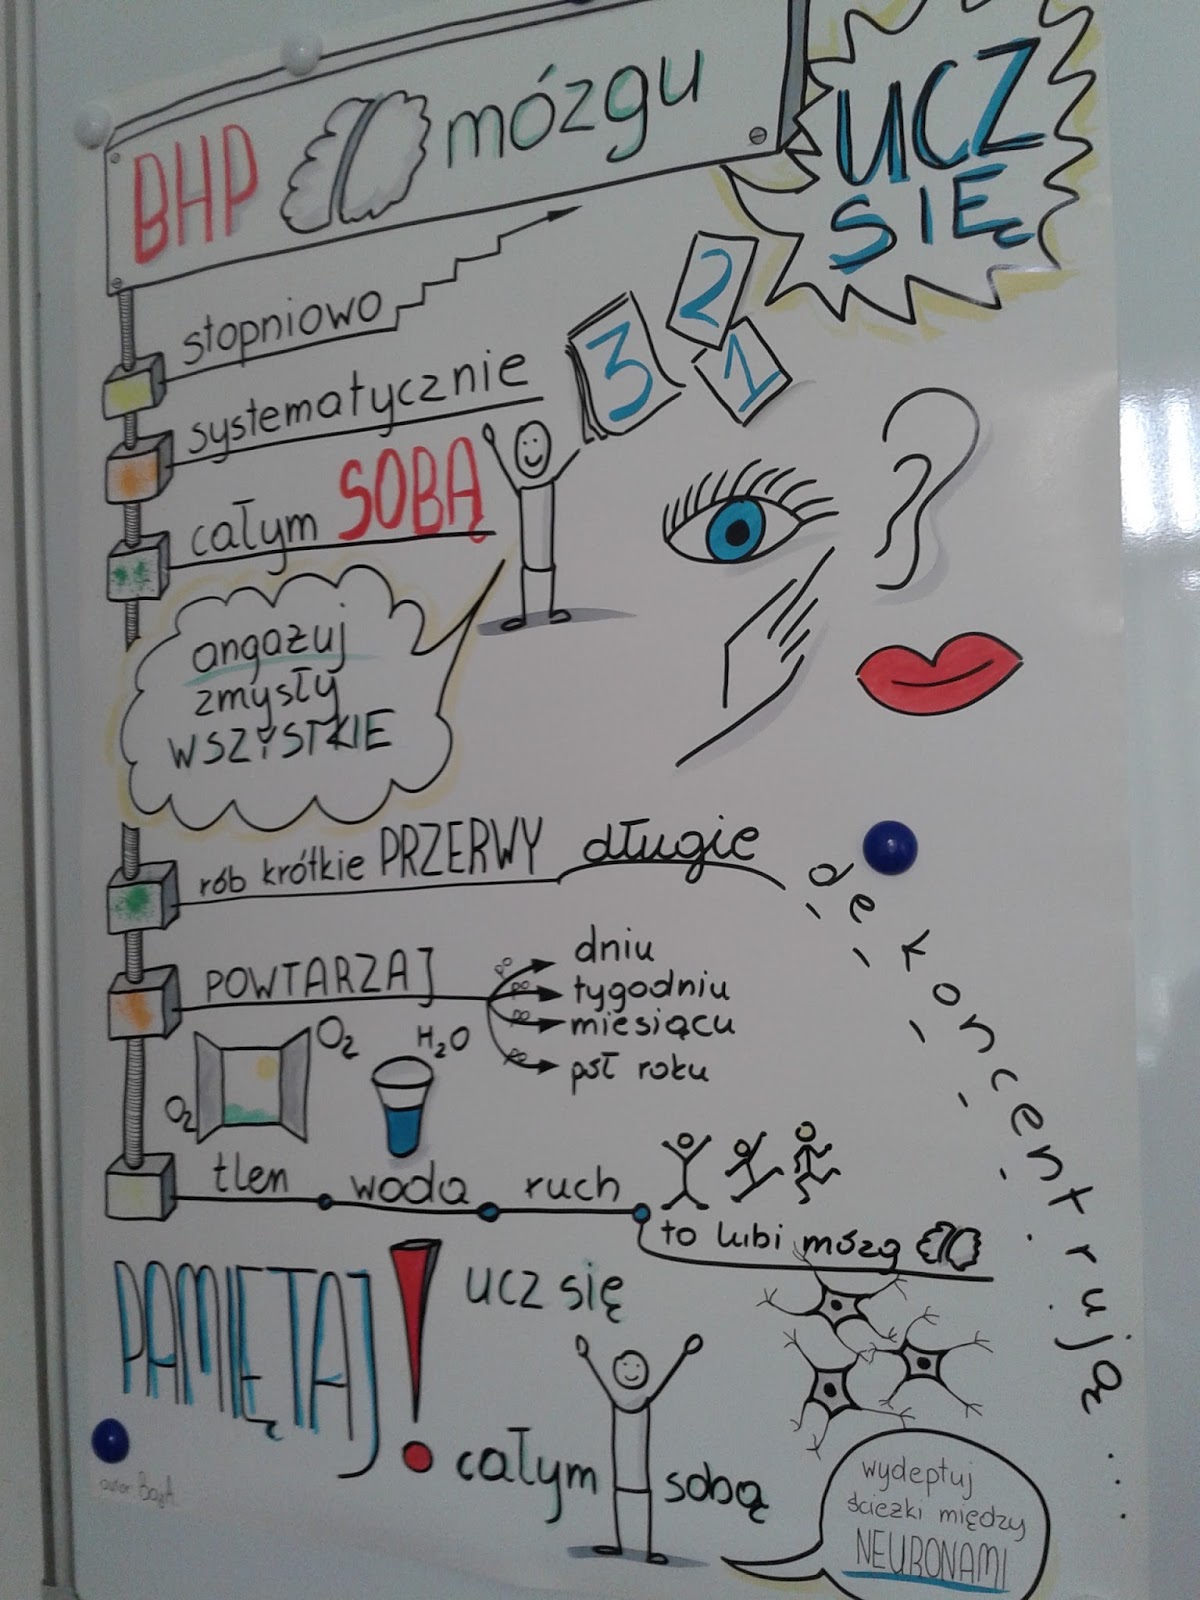 BHP mózgu
UCZ
SIĘ
stopniowo
systematycznie
3 2 1
całym SOBĄ
angażuj
zmysły
WSZYSTKIE
rób krótkie PRZERWY długie dekoncentrują...
POWTARZAJ
po dniu
po tygodniu
po miesiącu
po pół roku
O2 O2 H2O
tlen woda ruch
to lubi mózg
PAMIĘTAJ! ucz się
całym sobą
wydeptuj
ścieżki między
NEURONAMI
autor